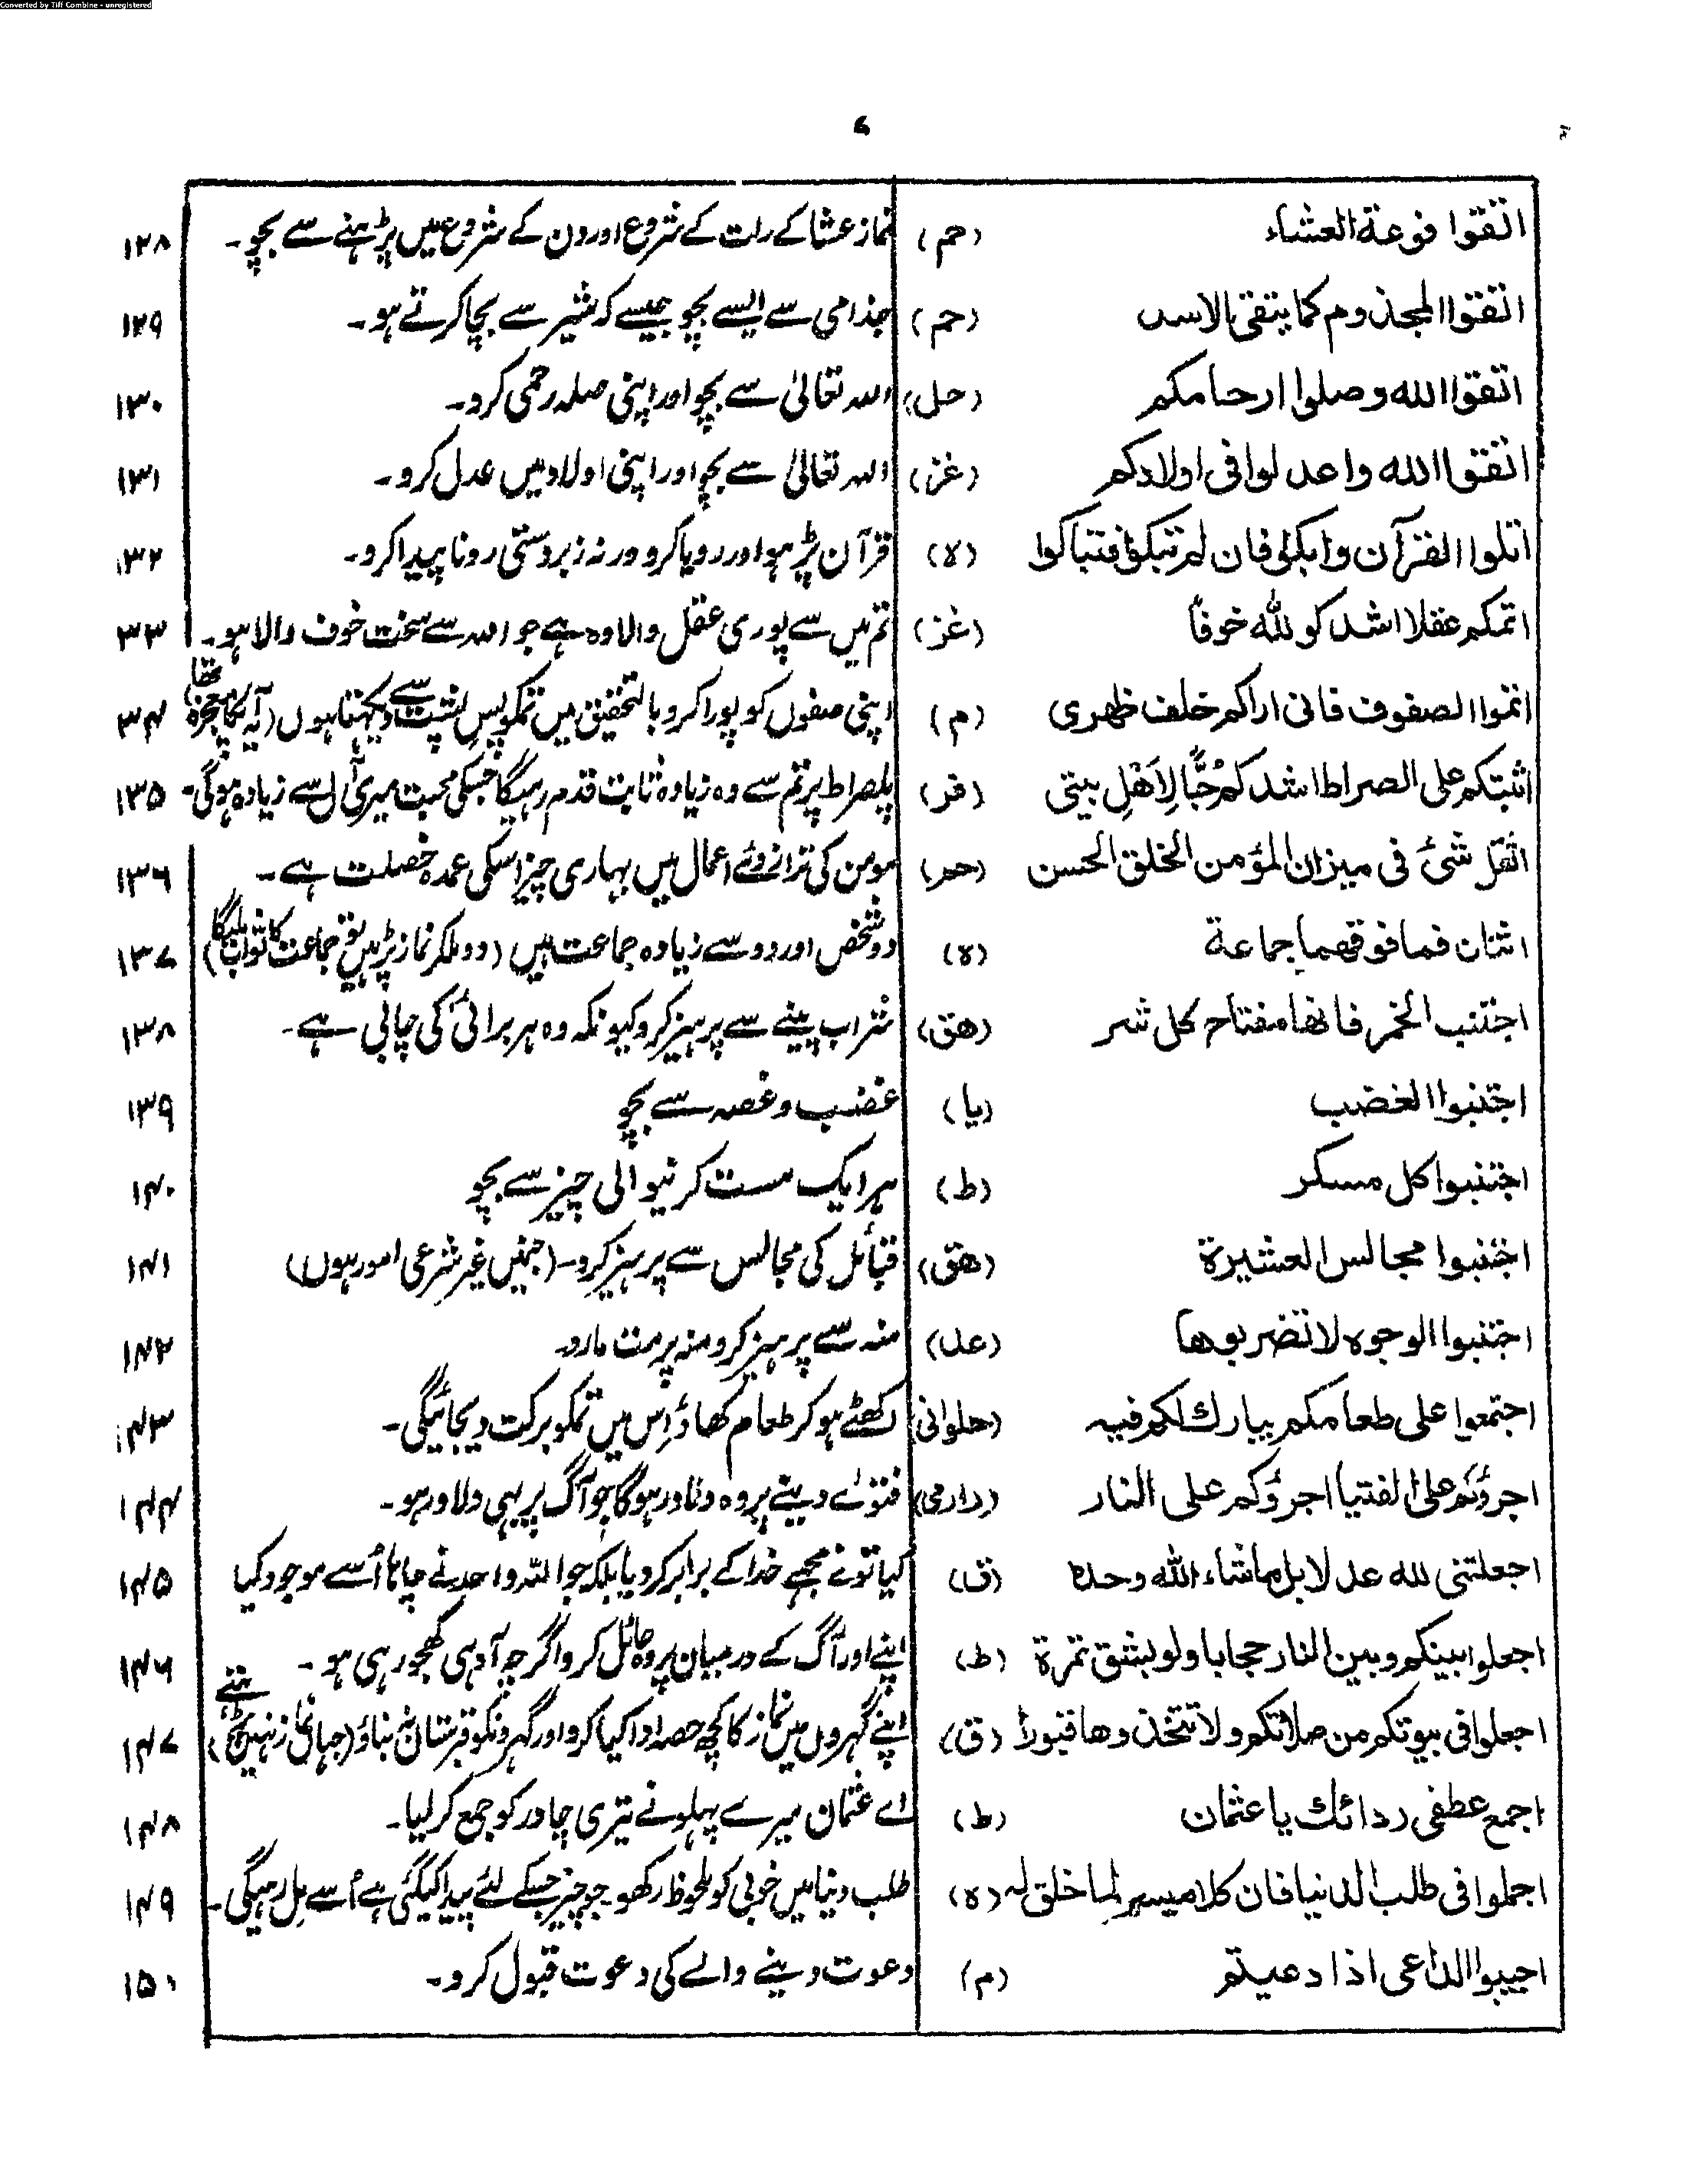 Converted by Tiff Combine - unregistered
۷
اتقوا فوعة العشاء (حم) نماز عشا کے رات کے شروع اور دن کے شروع میں پڑہنے سے بچو۔ ۱۲۸
اتقوا المجذوم کما یتقی الاسد (حم) جذامی سے ایسے بچو جیسے کہ شیر سے بچا کرتے ہو۔ ۱۲۹
اتقوا الله وصلوا ارحامکم (حل) اللہ تعالیٰ سے بچو اور اپنی صلہ رحمی کرو۔ ۱۳۰
اتقوا الله واعدلوا فی اولادکم (غز) اللہ تعالیٰ سے بچو اور اپنی اولاد میں عدل کرو۔ ۱۳۱
اتلوا القرآن وابکوا فان لم تبکوا فتباکوا (ہ) قرآن پڑہو اور رویا کرو ورنہ زبردستی رونا پیدا کرو۔ ۱۳۲
اتمکم عقلا اشدکم لله خوفًا (غز) تم میں سے پوری عقل والا وہ ہے جو اللہ سے سخت خوف والا ہو۔ ۳۳
اتموا الصفوف فانی اراکم خلف ظهری (م) اپنی صفوں کو پورا کرو بالتحقیق میں تمکو پس پشت سے دیکہتا ہوں (یہ آپکا معجزہ تھا) ۳۴
اثبتکم علی الصراط اشدکم حُبًّا لِاَهْلِ بیتی (فر) پلصراط پر تم سے وہ زیادہ ثابت قدم رہیگا جسکی محبت میری آل سے زیادہ ہوگی۔ ۱۳۵
اثقل شئ فی میزان المؤمن الخلق الحسن (حر) مومن کی ترازوئے اعمال میں بہاری چیز اسکی عمدہ خصلت ہے۔ ۱۳۶
اثنان فما فوقهما جماعة (ہ) دو شخص اور دو سے زیادہ جماعت ہیں (دو ملکر نماز پڑہیں تو جماعت کا ثواب ملیگا) ۱۳۷
اجتنب الخمر فانها مفتاح کل شر (هق) شراب پینے سے پرہیز کرو کیونکہ وہ ہر برائی کی چابی ہے۔ ۱۳۸
اجتنبوا الغضب (یا) غضب و غصہ سے بچو ۱۳۹
اجتنبوا کل مسکر (ط) ہر ایک مست کرنیوالی چیز سے بچو ۱۴۰
اجتنبوا مجالس العشیرة (هق) قبائل کی مجالس سے پرہیز کرو۔ (جنمیں غیر شرعی امور ہوں) ۱۴۱
اجتنبوا الوجوه لا تضربوها (عد) منہ سے پرہیز کرو منہ پر مت مارو۔ ۱۴۲
اجتمعوا علی طعامکم یبارك لکم فیہ (حلوانی) اکھٹے ہو کر طعام کھاؤ اِس میں تمکو برکت دیجائیگی۔ ۱۴۳
اجرؤکم علی الفتیا اجرؤکم علی النار (دارمی) فتوٰے دینے پر وہ دلاور ہوگا جو آگ پر بہی دلاور ہو۔ ۱۴۴
اجعلتنی لله عدلا بل ماشاء الله وحدہ (ق) کیا تونے مجہے خدا کے برابر کر دیا بلکہ جو اللہ واحد نے چاہا اُسے موجود کیا ۱۴۵
اجعلوا بینکم وبین النار حجابا ولو بشق تمرة (ط) اپنے اور آگ کے درمیان پردہ حائل کرو اگرچہ آدہی کھجور ہی ہو۔ ۱۴۶
اجعلوا فی بیوتکم من صلاتکم ولا تتخذوها قبورا (ق) اپنے گہروں میں نماز کا کچھ حصہ ادا کیا کرو اور گہرونکو قبرستان نہ بناؤ (جہاں نماز نہیں پڑہتے) ۱۴۷
اجمع عطفی ردائك یا عثمان (ط) اے عثمان میرے پہلو نے تیری چادر کو جمع کر لیا۔ ۱۴۸
اجملوا فی طلب الدنیا فان کلا میسر لما خلق لہ (ہ) طلب دنیا میں خوبی کو ملحوظ رکھو جو چیز جسکے لئے پیدا کیگئی ہے اُسے مل رہیگی۔ ۱۴۹
اجیبوا الداعی اذا دعیتم (م) دعوت دینے والے کی دعوت قبول کرو۔ ۱۵۰